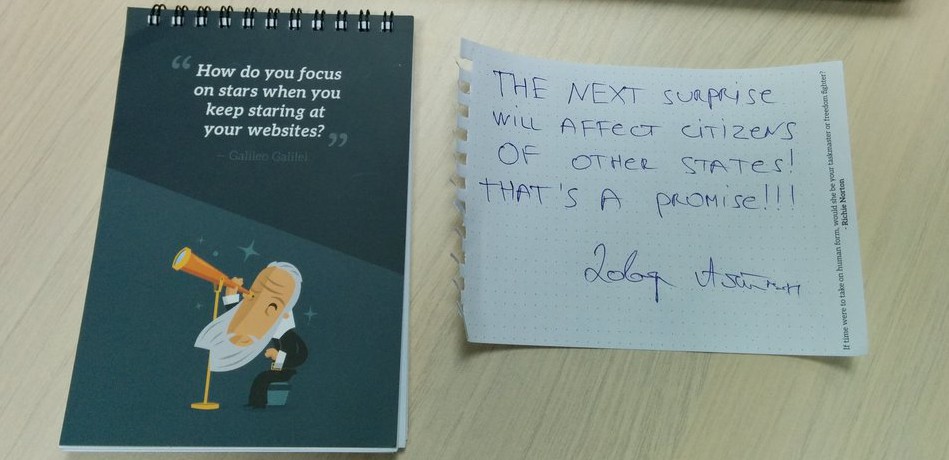 “ How do you focus
on stars when you
keep staring at
your websites? ”
– Galileo Galilei
THE NEXT SURPRISE
WILL AFFECT CITIZENS
OF OTHER STATES!
THAT'S A PROMISE!!!
If time were to take on human form, would she be your taskmaster or freedom fighter?
- Richie Norton